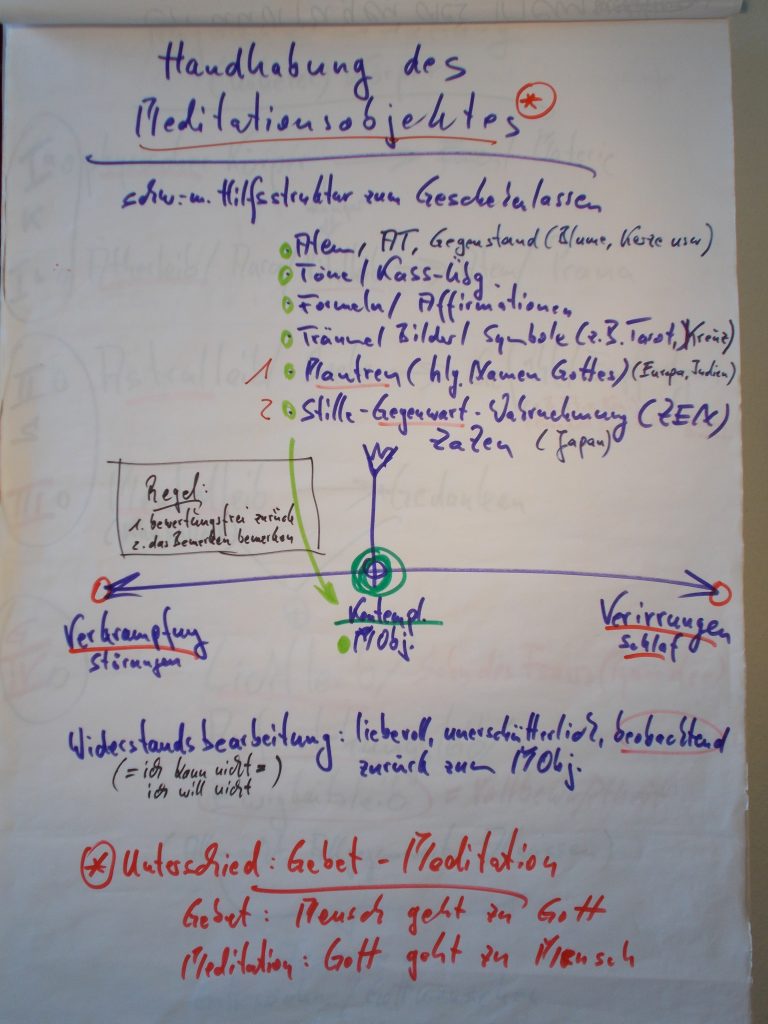 Handhabung des
Meditationsobjektes *
Hilfsstruktur zum Geschehenlassen
Atem, AT, Gegenstand (Blume, Kerze usw)
Töne / Kass-Übg.
Formeln / Affirmationen
Träume / Bilder / Symbole (z.B. Tarot, Kreuz)
1 Mantren (hlg. Namen Gottes) (Europa, Indien)
2 Stille-Gegenwart-Wahrnehmung (ZEN)
ZaZen (Japan)
Regel:
1. bewertungsfrei zurück
2. das Bemerken bemerken
Verkrampfung
störungen
Kontempl.
MObj.
Verirrungen
schlaf
Widerstandsbearbeitung: liebevoll, unerschütterlich, beobachtend
zurück zum MObj.
(= ich kann nicht =
ich will nicht)
* Unterschied: Gebet - Meditation
Gebet: Mensch geht zu Gott
Meditation: Gott geht zu Mensch